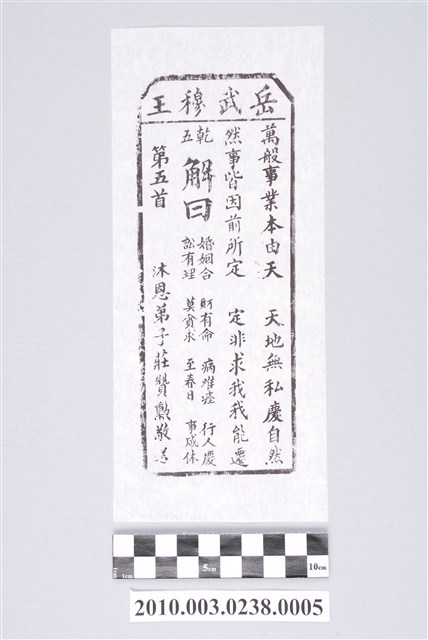 岳武穆王
萬般事業本由天 天地無私慶自然
然事皆因前所定 定非求我我能遷
乾五
解曰
婚姻合 財有命 病难痊 行人慶
訟有理 莫貪求 至春日 事咸休
第五首
沐恩弟子莊贊勳敬送
1cm 5cm 10cm
2010.003.0238.0005